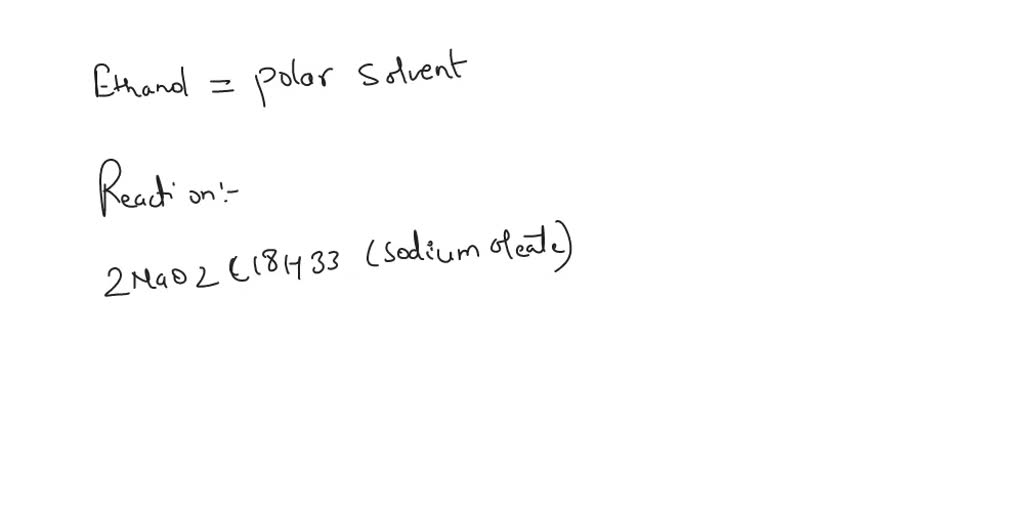 Ethanol = polar solvent
Reaction:-
2NaO2C18H33 (sodium oleate)